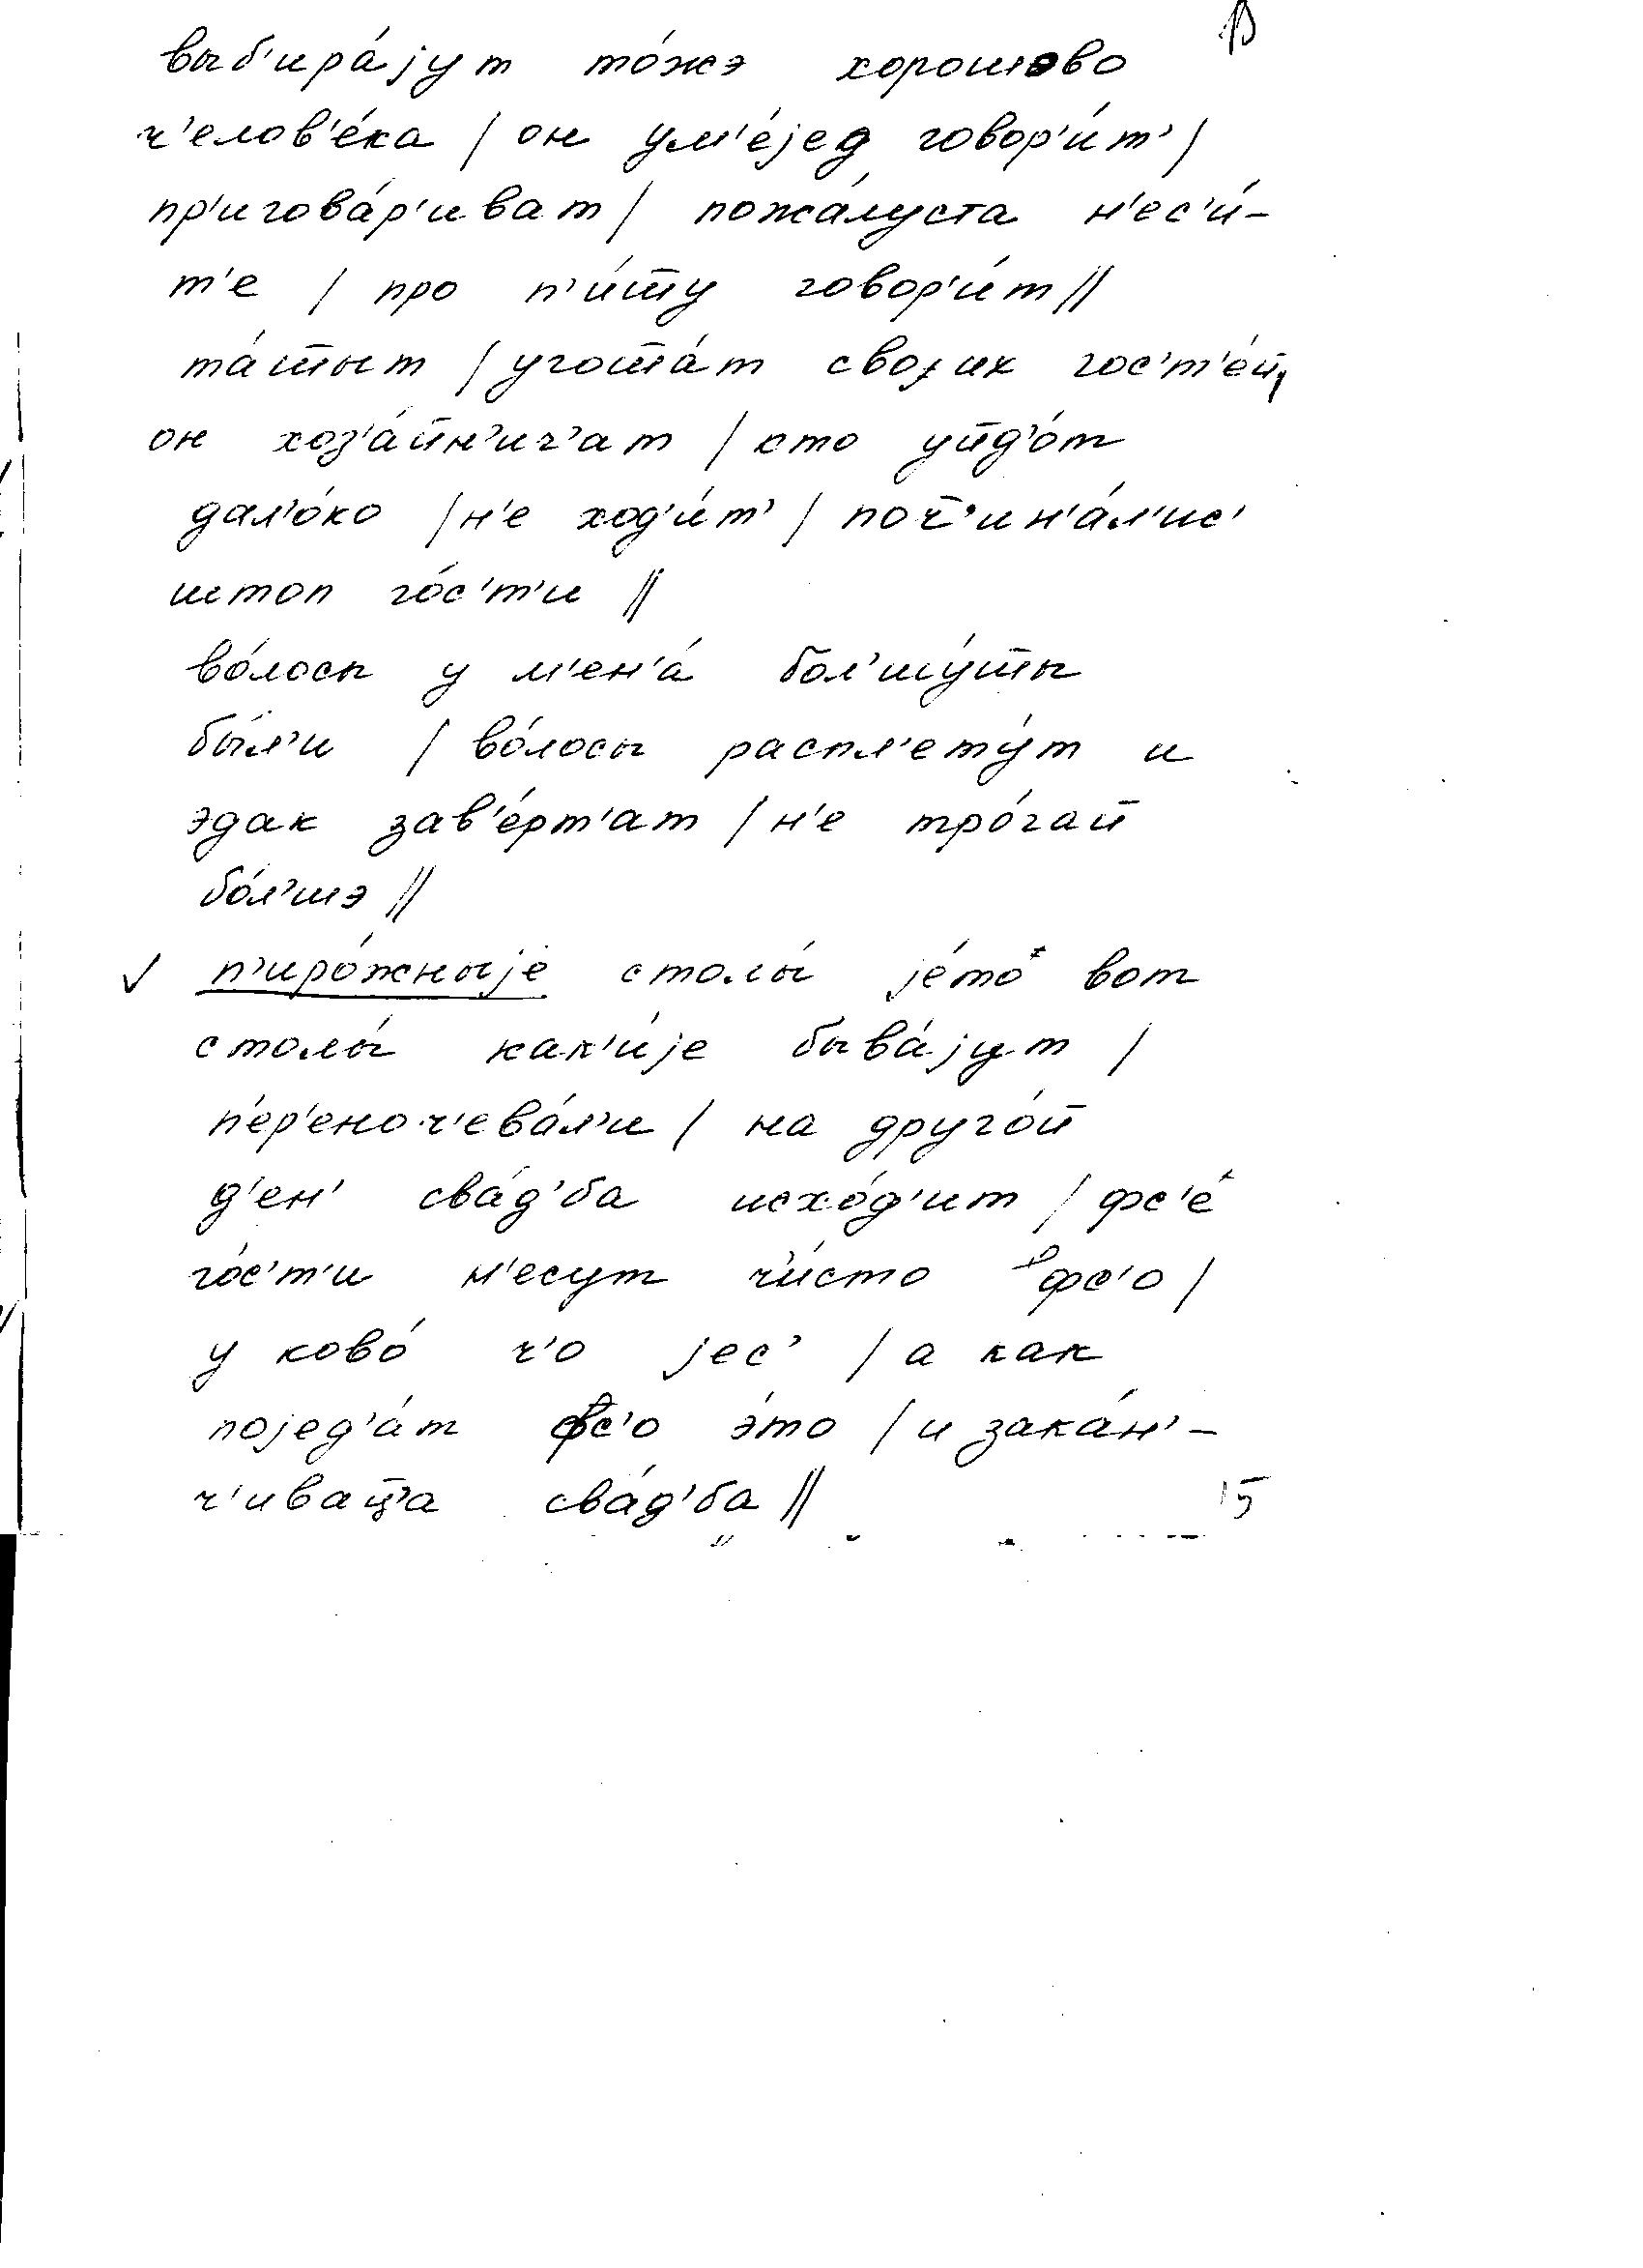 выб'ира́јут то́жэ хорошово
ч'елов'е́ка / он ум'е́јед говор'и́т' /
пр'игова́р'иват / пожа́луста н'ес'и́-
т'е / про п'и́ш̄у говор'и́т //
та́ш̄ыт / угош̄а́т својих гос'т'е́й,
он хоз'а́йн'ич'ат / кто уйд'о́т
дал'о́ко / н'е ход'и́т' / поч̄'ин'а́л'ис'
штоп го́с'т'и //
во́лосы у м'ен'а́ бол'шу́ш̄ы
бы́л'и / во́лосы распл'ету́т и
эдак зав'е́рт'ат / н'е тро́гай
бо́л'шэ //
✓ п'иро́жныје столы́ је́то вот
столы́ как'и́је быва́јут /
п'ер'еноч'ева́л'и / на друго́й
д'ен' сва́д'ба исхо́д'ит / фс'е́
го́с'т'и н'есут ч'и́сто фс'о /
у ково́ ч'о јес' / а как
појед'а́т фс'о э́то / и зака́н'-
ч'ивац̄а сва́д'ба //
15